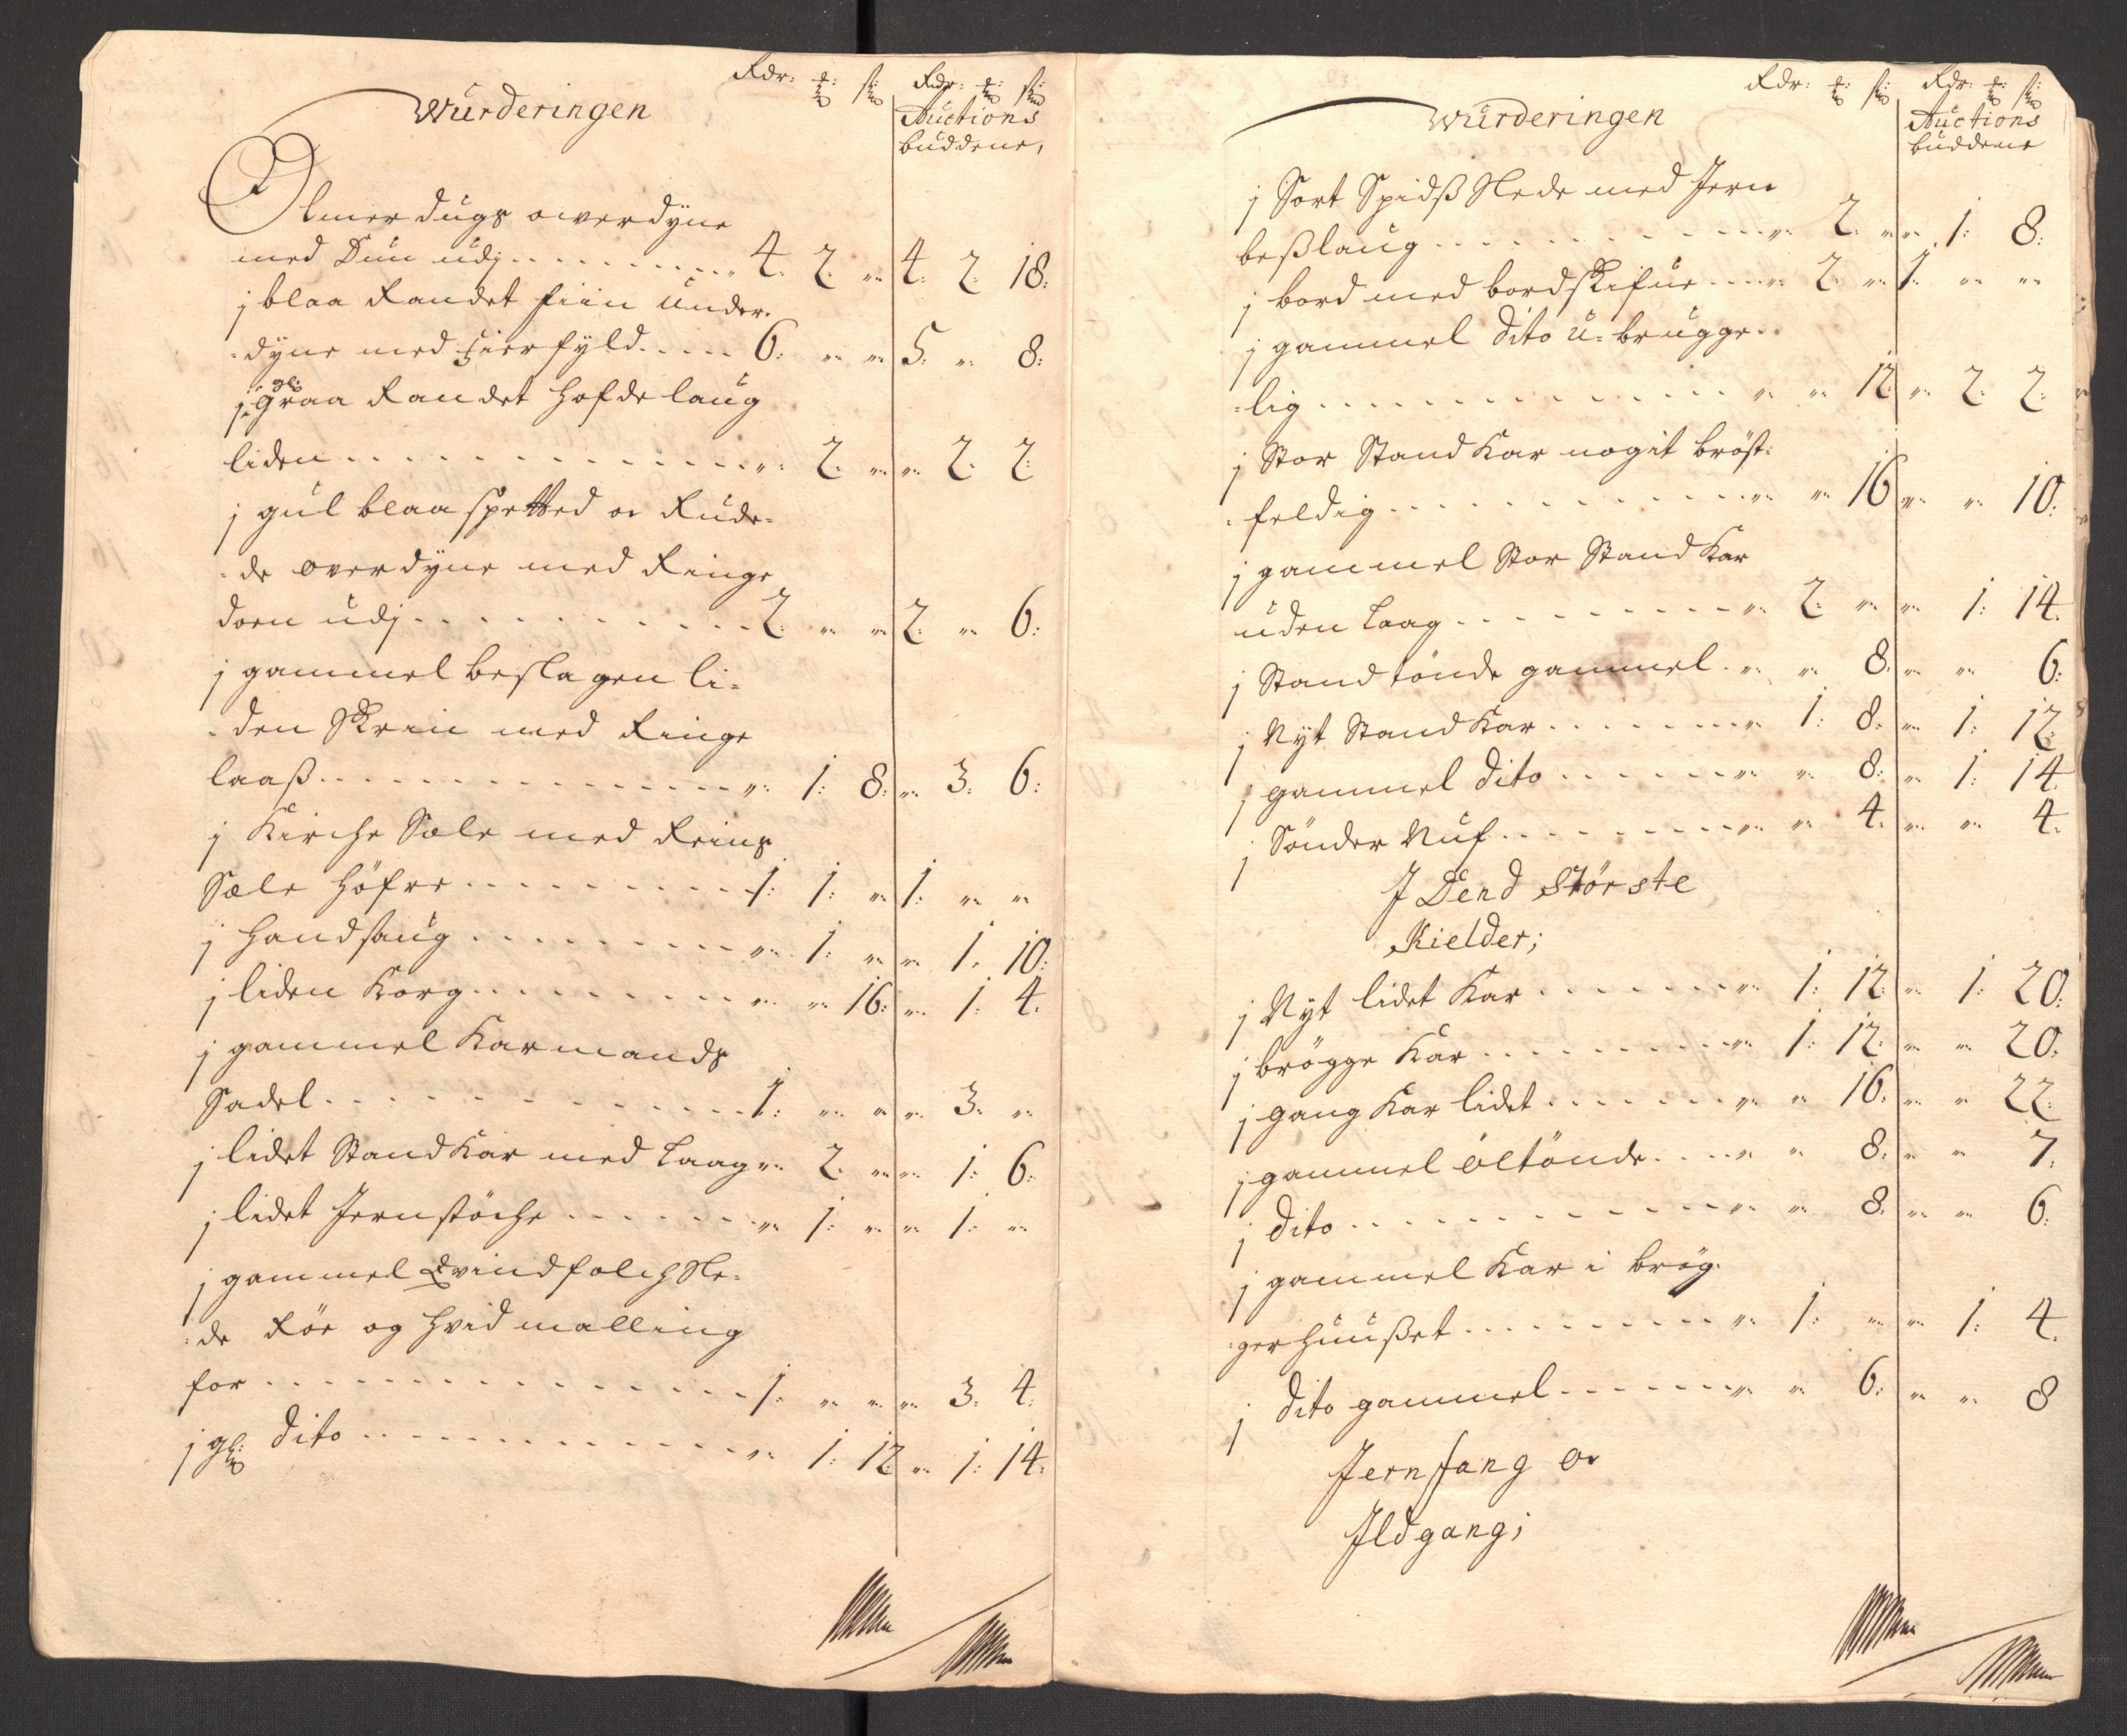 Rdr: t: sk:
Rdr: t: sk:
Wurderingen
Auctions
buddene,
Olmerdugs overdyne
med Duun udj . . . . . . . . . . 4. 2. „ 4. 2. 18.
j blaa Randet fiin Under-
dyne med fierfyld . . . . . 6: „ „ 5. „ 8:
j gl: graa Randet Hofde laug
liden . . . . . . . . . . . . . „ 2. „ „ 2. 2.
j gul blaa spetted oc Rude-
de overdyne med Ringe
doen udj . . . . . . . . . . . 2. „ „ 2. „ 6:
j gammel beslagen li-
den Skrin med Ringe
laaß . . . . . . . . . . . . . „ 1: 8. „ 3. 6:
j Kirche Sæle med Reins
Sæle Höfre . . . . . . . . . 1. 1: „ 1. „ „
j handsaug . . . . . . . . . „ 1: „ „ 1. 10:
j liden Korg . . . . . . . . „ „ 16: „ 1: 4.
j gammel Karmands
Sadel . . . . . . . . . . . . 1. „ „ „ 3. „
j lidet Stand Kar med Laag „ 2. „ „ 1: 6:
j lidet Jernstöche . . . . . „ 1: „ „ 1: „
j gammel Qvindfolch Sle-
de Röe og Hvid malling
for . . . . . . . . . . . . . 1. „ „ „ 3. 4.
j gl: dito . . . . . . . . . . „ 1: 12 „ 1: 14.
Rdr: t: sk:
Rdr: t: sk:
Wurderingen
Auctions
buddene
j Sort Spidß Slede med Jern
beßlaug . . . . . . . . . . . „ 2. „ „ 1: 8:
j bord med bordskifue . . . „ 2. „ 1. „ „
j gammel dito u-brugge-
lig . . . . . . . . . . . . . „ „ 12. „ 2. 2.
j Stor Stand Kar nogit bröst-
feldig . . . . . . . . . . . . „ „ 16 „ „ 10:
j gammel Stor Stand Kar
uden Laag . . . . . . . . . „ 2. „ „ 1: 14.
j Stand tönde gammel . „ „ 8. „ „ 6:
j Nyt Stand Kar . . . . . . „ 1: 8. „ 1: 12.
j gammel dito . . . . . . . „ „ 8: „ 1: 14.
j Sönder Nuf . . . . . . . . „ „ 4. „ „ 4.
J Dend Störste
Kielder;
j Nyt lidet Kar . . . . . . . „ 1: 12. „ 1: 20:
j brögge Kar . . . . . . . . „ 1: 12. „ „ 20.
j gang Kar lidet . . . . . . „ „ 16. „ „ 22.
j gammel öltönde . . . . „ „ 8. „ „ 7.
j dito . . . . . . . . . . . . „ „ 8. „ „ 6.
j gammel Kar i brög-
gerhuußet . . . . . . . . . „ 1: „ „ 1: 4.
j dito gammel . . . . . . „ „ 6: „ „ 8
Jernfang oc
Jldgang;